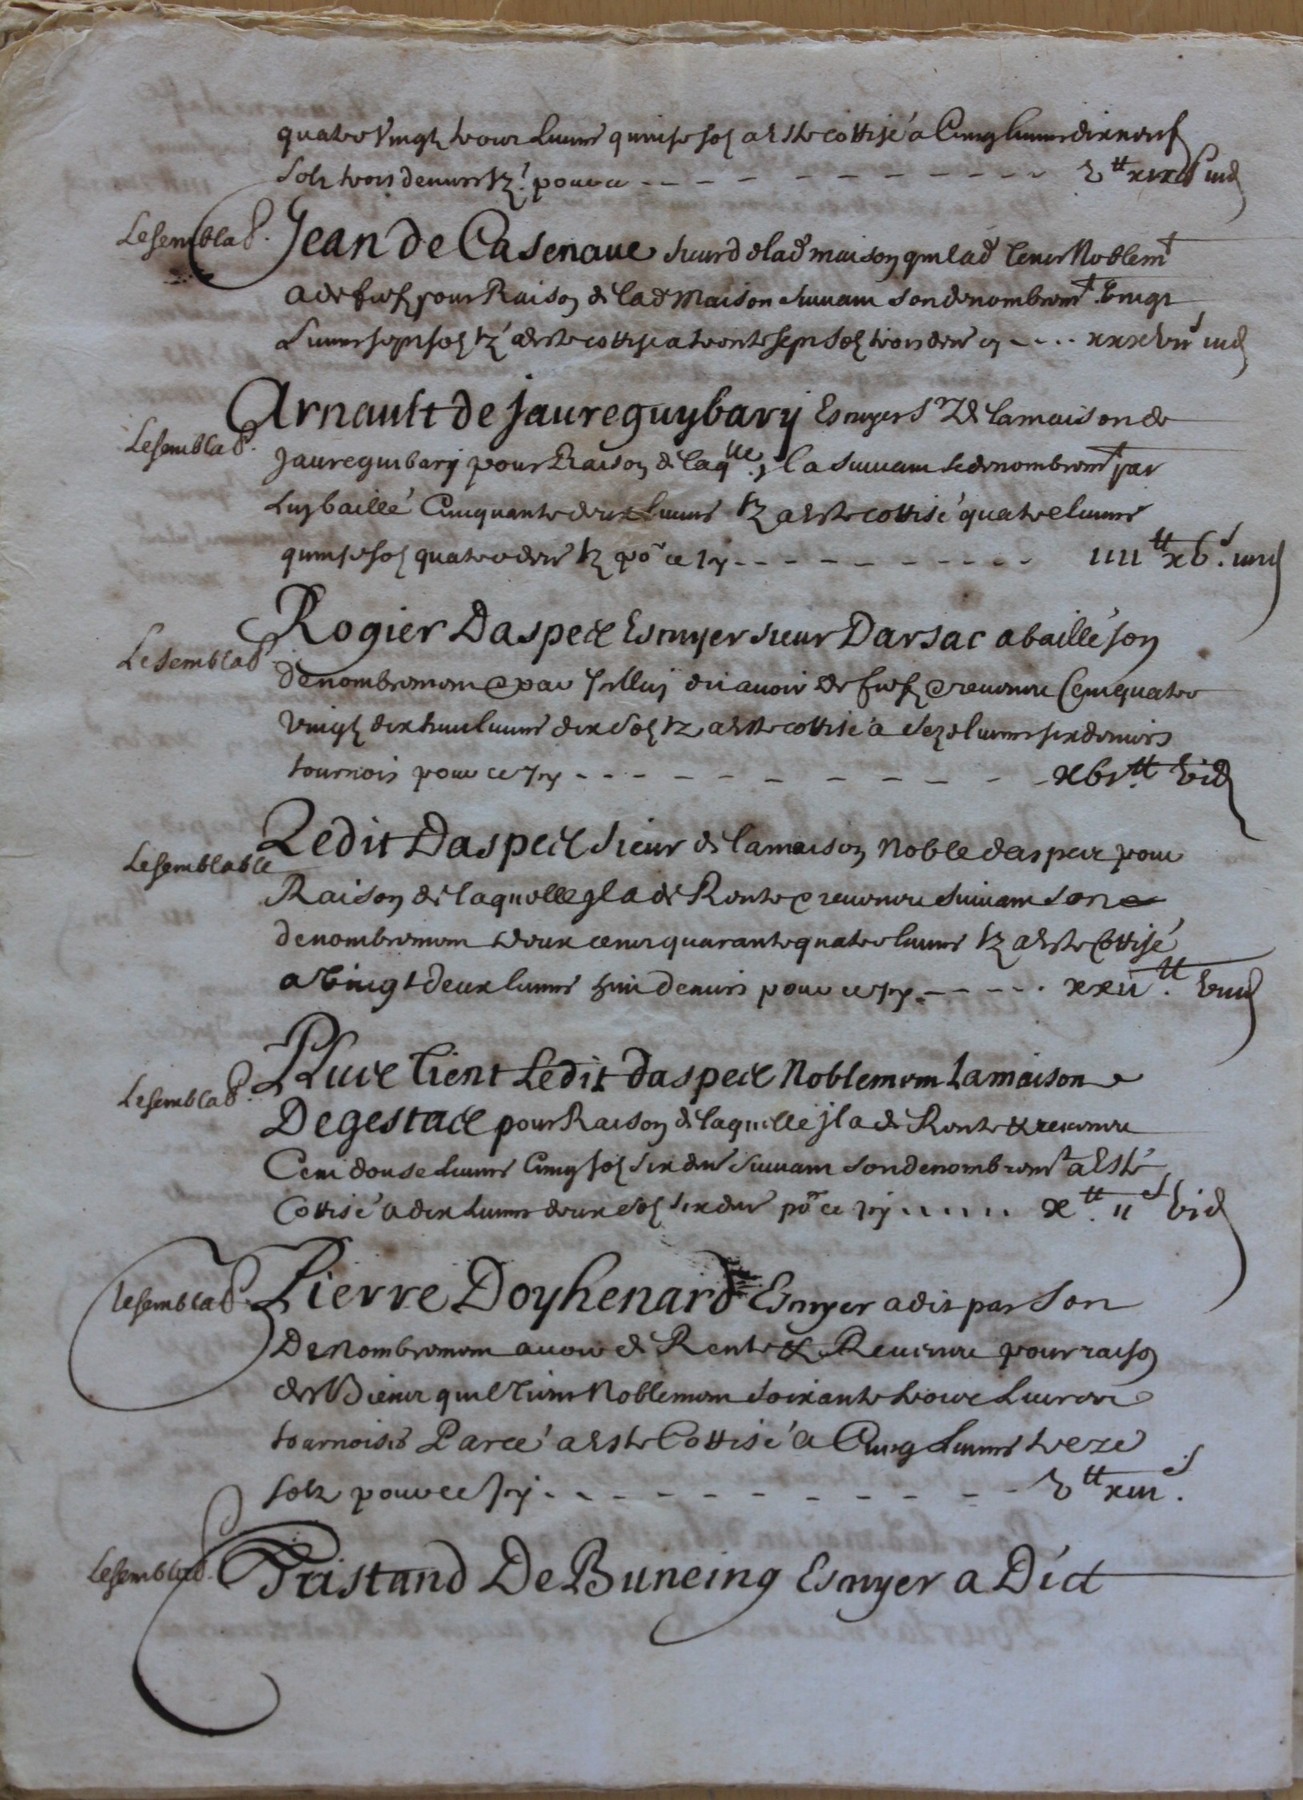 quatre Vingtz treize Livres quinse solz a Esté cottisé a Cinq livres dix neuf
solz trois deniers tz. pour ce - - - - - v tt xix s iii d
Le semblab. Jean de Casenave sieur de lad maison qu'il ad tenir Noblemt
a de fief pour Raison de lad Maison suivant son denombremt vingt
Livres sept solz tz a esté cottisé a trente sept solz trois den cy - - - xxxvii s iii d
Arnault de Jaureguybary Escuyer Sr de la maison de
Le semblab. Jaureguibary pour Raison de laqlle jl a suivant le denombremt par
Luy baillé Cinquante deux livres tz a esté cottisé quatre livres
quinse solz quatre den tz po ce Jcy - - - - - iiii tt xv s. iiii d
Rogier Daspeit Escuyer sieur Darsac a baillé son
Le semblab. denombrement e par Jcelluy dit avoir de fiefz e revenu Cent quatre
Vingtz dix huit livres dix solz tz a esté cottisé a seze livres six deniers
tournois pour ce Jcy - - - - - xvi tt vi d
Le semblable Ledit Daspeit sieur de la maison Noble daspeit pour
Raison de laquelle jl a de Rente e revenu suivant son
denombrement deux cens quarante quatre livres tz a esté Cottisé
a vingt deux livres huit deniers pour ce Jcy - - - - xxii tt. viii d
Le semblab. Plus tient Ledit daspeit Noblement La maison
De gestait pour Raison de laquelle jl a de Rente et revenu
Cent douse Livres Cinq solz six den suivant son denombremt a Esté
Cottisé a dix Livres deux solz six den po ce Jcy - - - - x tt. ii s vi d
Le semblab. Pierre Doyhenard Escuyer a dit par son
Denombrement avoir de Rente et Revenu pour raison
des Biens qu'il tient Noblement soixante treize Livres
tournoises Par ce a Esté Cottisé a Cinq Livres treze
solz pour ce Jcy - - - - - v tt xiii s.
Le semblab. Tristand De Buneing Escuyer a Dict